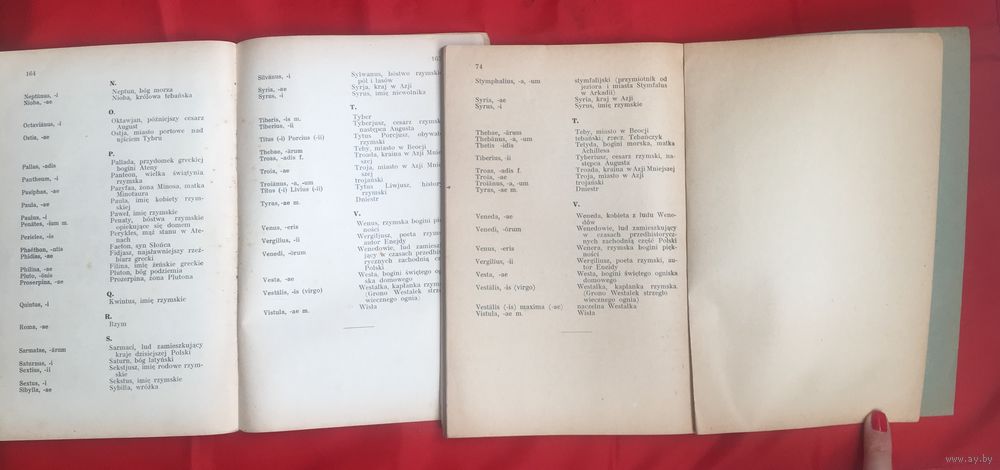 164
N.
Neptūnus, -i Neptun, bóg morza
Nioba, -ae Nioba, królowa tebańska
O.
Octaviānus, -i Oktawjan, późniejszy cesarz
August
Ostia, -ae Ostja, miasto portowe nad
ujściem Tybru
P.
Pallas, -adis Pallada, przydomek greckiej
bogini Ateny
Pantheum, -i Panteon, wielka świątynia
rzymska
Pasiphae, -as Pazyfaa, żona Minosa, matka
Minotaura
Paula, -ae Paula, imię kobiety rzym-
skiej
Paulus, -i Paweł, imię rzymskie
Penātes, -ium m. Penaty, bóstwa rzymskie
opiekujące się domem
Pericles, -is Perykles, mąż stanu w Ate-
nach
Phaëthon, -ntis Faeton, syn Słońca
Phidias, -ae Fidjasz, najsławniejszy rzeź-
biarz grecki
Philina, -ae Filina, imię żeńskie greckie
Pluto, -ōnis Pluton, bóg podziemia
Proserpina, -ae Prozerpina, żona Plutona
Q.
Quintus, -i Kwintus, imię rzymskie
R.
Roma, -ae Rzym
S.
Sarmatae, -ārum Sarmaci, lud zamieszkujący
kraje dzisiejszej Polski
Saturnus, -i Saturn, bóg latyński
Sextius, -ii Sekstjusz, imię rodowe rzym-
skie
Sextus, -i Sekstus, imię rzymskie
Sibylla, -ae Sybilla, wróżka
Silvānus, -i Sylwanus, bóstwo rzymskie
pól i lasów
Syria, -ae Syrja, kraj w Azji
Syrus, -i Syrus, imię niewolnika
T.
Tiberis, -is m. Tyber
Tiberius, -ii Tyberjusz, cesarz rzymsk
następca Augusta
Titus (-i) Porcius (-ii) Tytus Porcjusz, obywat
rzymski
Thebae, -ārum Teby, miasto w Beocji
Troas, -adis f. Troada, kraina w Azji Mn
szej
Troia, -ae Troja, miasto w Azji Mniej
szej
Troiānus, -a, -um trojański
Titus (-i) Livius (-ii) Tytus Liwjusz, histor
rzymski
Tyras, -ae m. Dniestr
V.
Venus, -eris Wenus, rzymska bogini pię
ności
Vergilius, -ii Wergiljusz, poeta rzymski,
autor Eneidy
Venedi, -ōrum Wenedowie, lud zamieszk
jący w czasach przedhis
rycznych zachodnią cz
Polski
Vesta, -ae Westa, bogini świętego og
ska domowego
Vestālis, -is (virgo) Westalka, kapłanka rzymsk
(Grono Westalek strze
wiecznego ognia)
Vistula, -ae m. Wisła
74
Stymphalius, -a, -um stymfalijski (przymiotnik od
jeziora i miasta Stymfalus
w Arkadii)
Syria, -ae Syria, kraj w Azji
Syrus, -i Syrus, imię rzymskie
T.
Thebae, -ārum Teby, miasto w Beocji
Thebānus, -a, -um tebański; rzecz. Tebańczyk
Thetis -idis Tetyda, bogini morska, matka
Achillesa
Tiberius, -ii Tyberiusz, cesarz rzymski, na-
stępca Augusta
Troas, -adis f. Troada, kraina w Azji Mniejszej
Troia, -ae Troja, miasto w Azji
Troiānus, -a, -um trojański
Tyras, -ae m. Dniestr
V.
Veneda, -ae Weneda, kobieta z ludu Wene-
dów
Venedi, -ōrum Wenedowie, lud zamieszkujący
w czasach przedhistorycz-
nych zachodnią część Polski
Venus, -eris Wenera, rzymska bogini pięk-
ności
Vergilius, -ii Wergiliusz, poeta rzymski, au-
tor Eneidy
Vesta, -ae Westa, bogini świętego ogniska
domowego
Vestālis, -is (virgo) Westalka, kapłanka rzymska.
(Grono Westalek strzegło
wiecznego ognia)
Vestālis (-is) maxima (-ae) naczelna Westalka
Vistula, -ae m. Wisła
www.ay.by